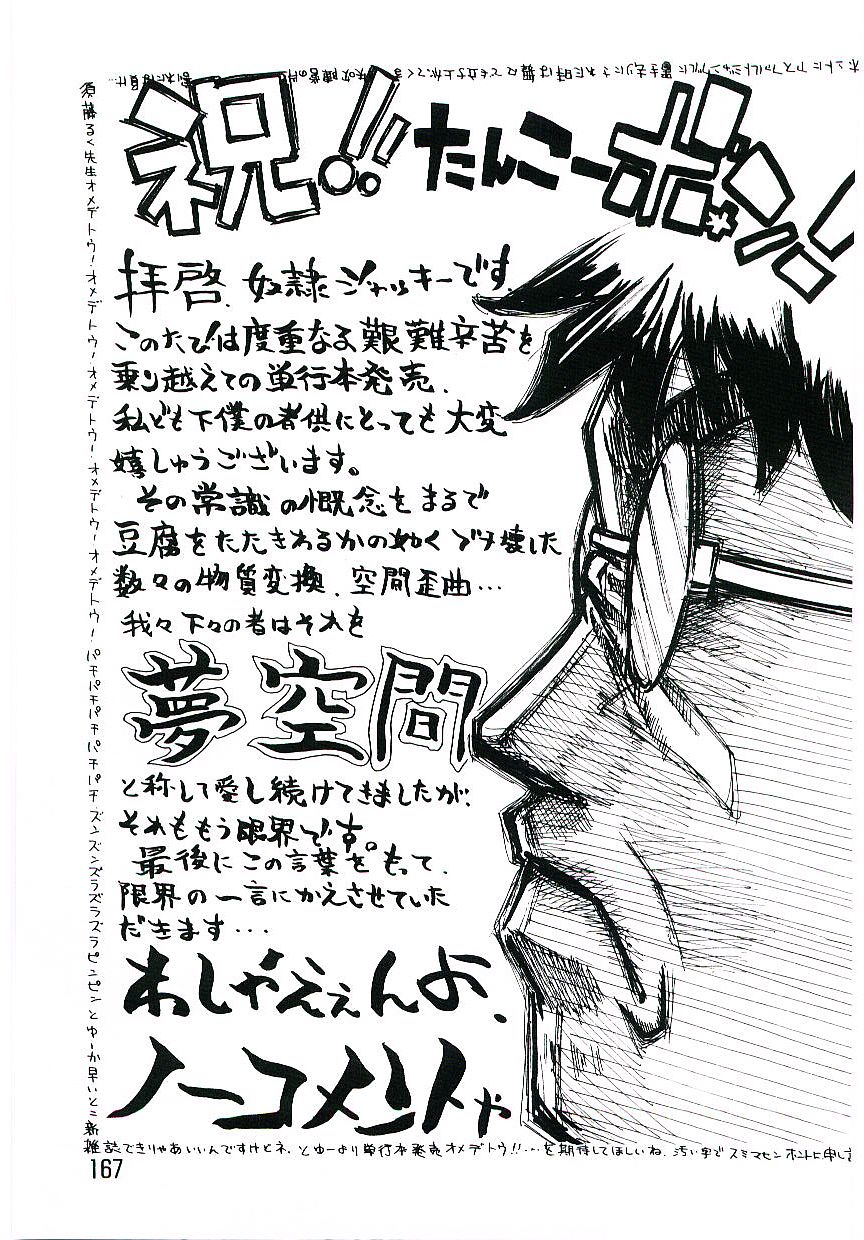 祝!! たんこーボン!
拝啓、奴隷ジャッキーです。
このたびは度重なる艱難辛苦を
乗り越えての単行本発売、
私ども下僕の者供にとっても大変
嬉しゅうございます。
その常識の慨念をまるで
豆腐をたたきわるかの如くブチ壊した
数々の物質変換、空間歪曲…
我々下々の者はそれを
夢空間
と称して愛し続けてきましたが、
それももう限界です。
最後にこの言葉をもって、
限界の一言にかえさせていた
だきます…
わしゃええんよ、
ノーコメントや
須藤るく先生オメデトウ!オメデトウ!オメデトウ!オメデトウ!オメデトウ!パチパチパチパチパチパチ
ズンズンズラズラズラピンピンとゆーか早いとこ新
雑誌できりゃあいいんですけどネ、とゆーより単行本発売オメデトウ!!…を期待してほしいね、汚い字でスミマセンホントに申し
167